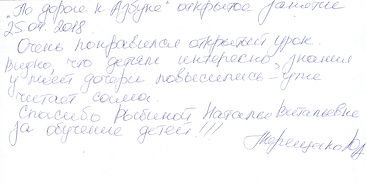 "По дороге к Азбуке" открытое занятие
25.04.2018.
Очень понравился открытый урок.
Видно, что детям интересно, знания
у моей дочери повысились - уже
читает сама.
Спасибо Рыбиной Наталье Витальевне
за обучение детей!!!